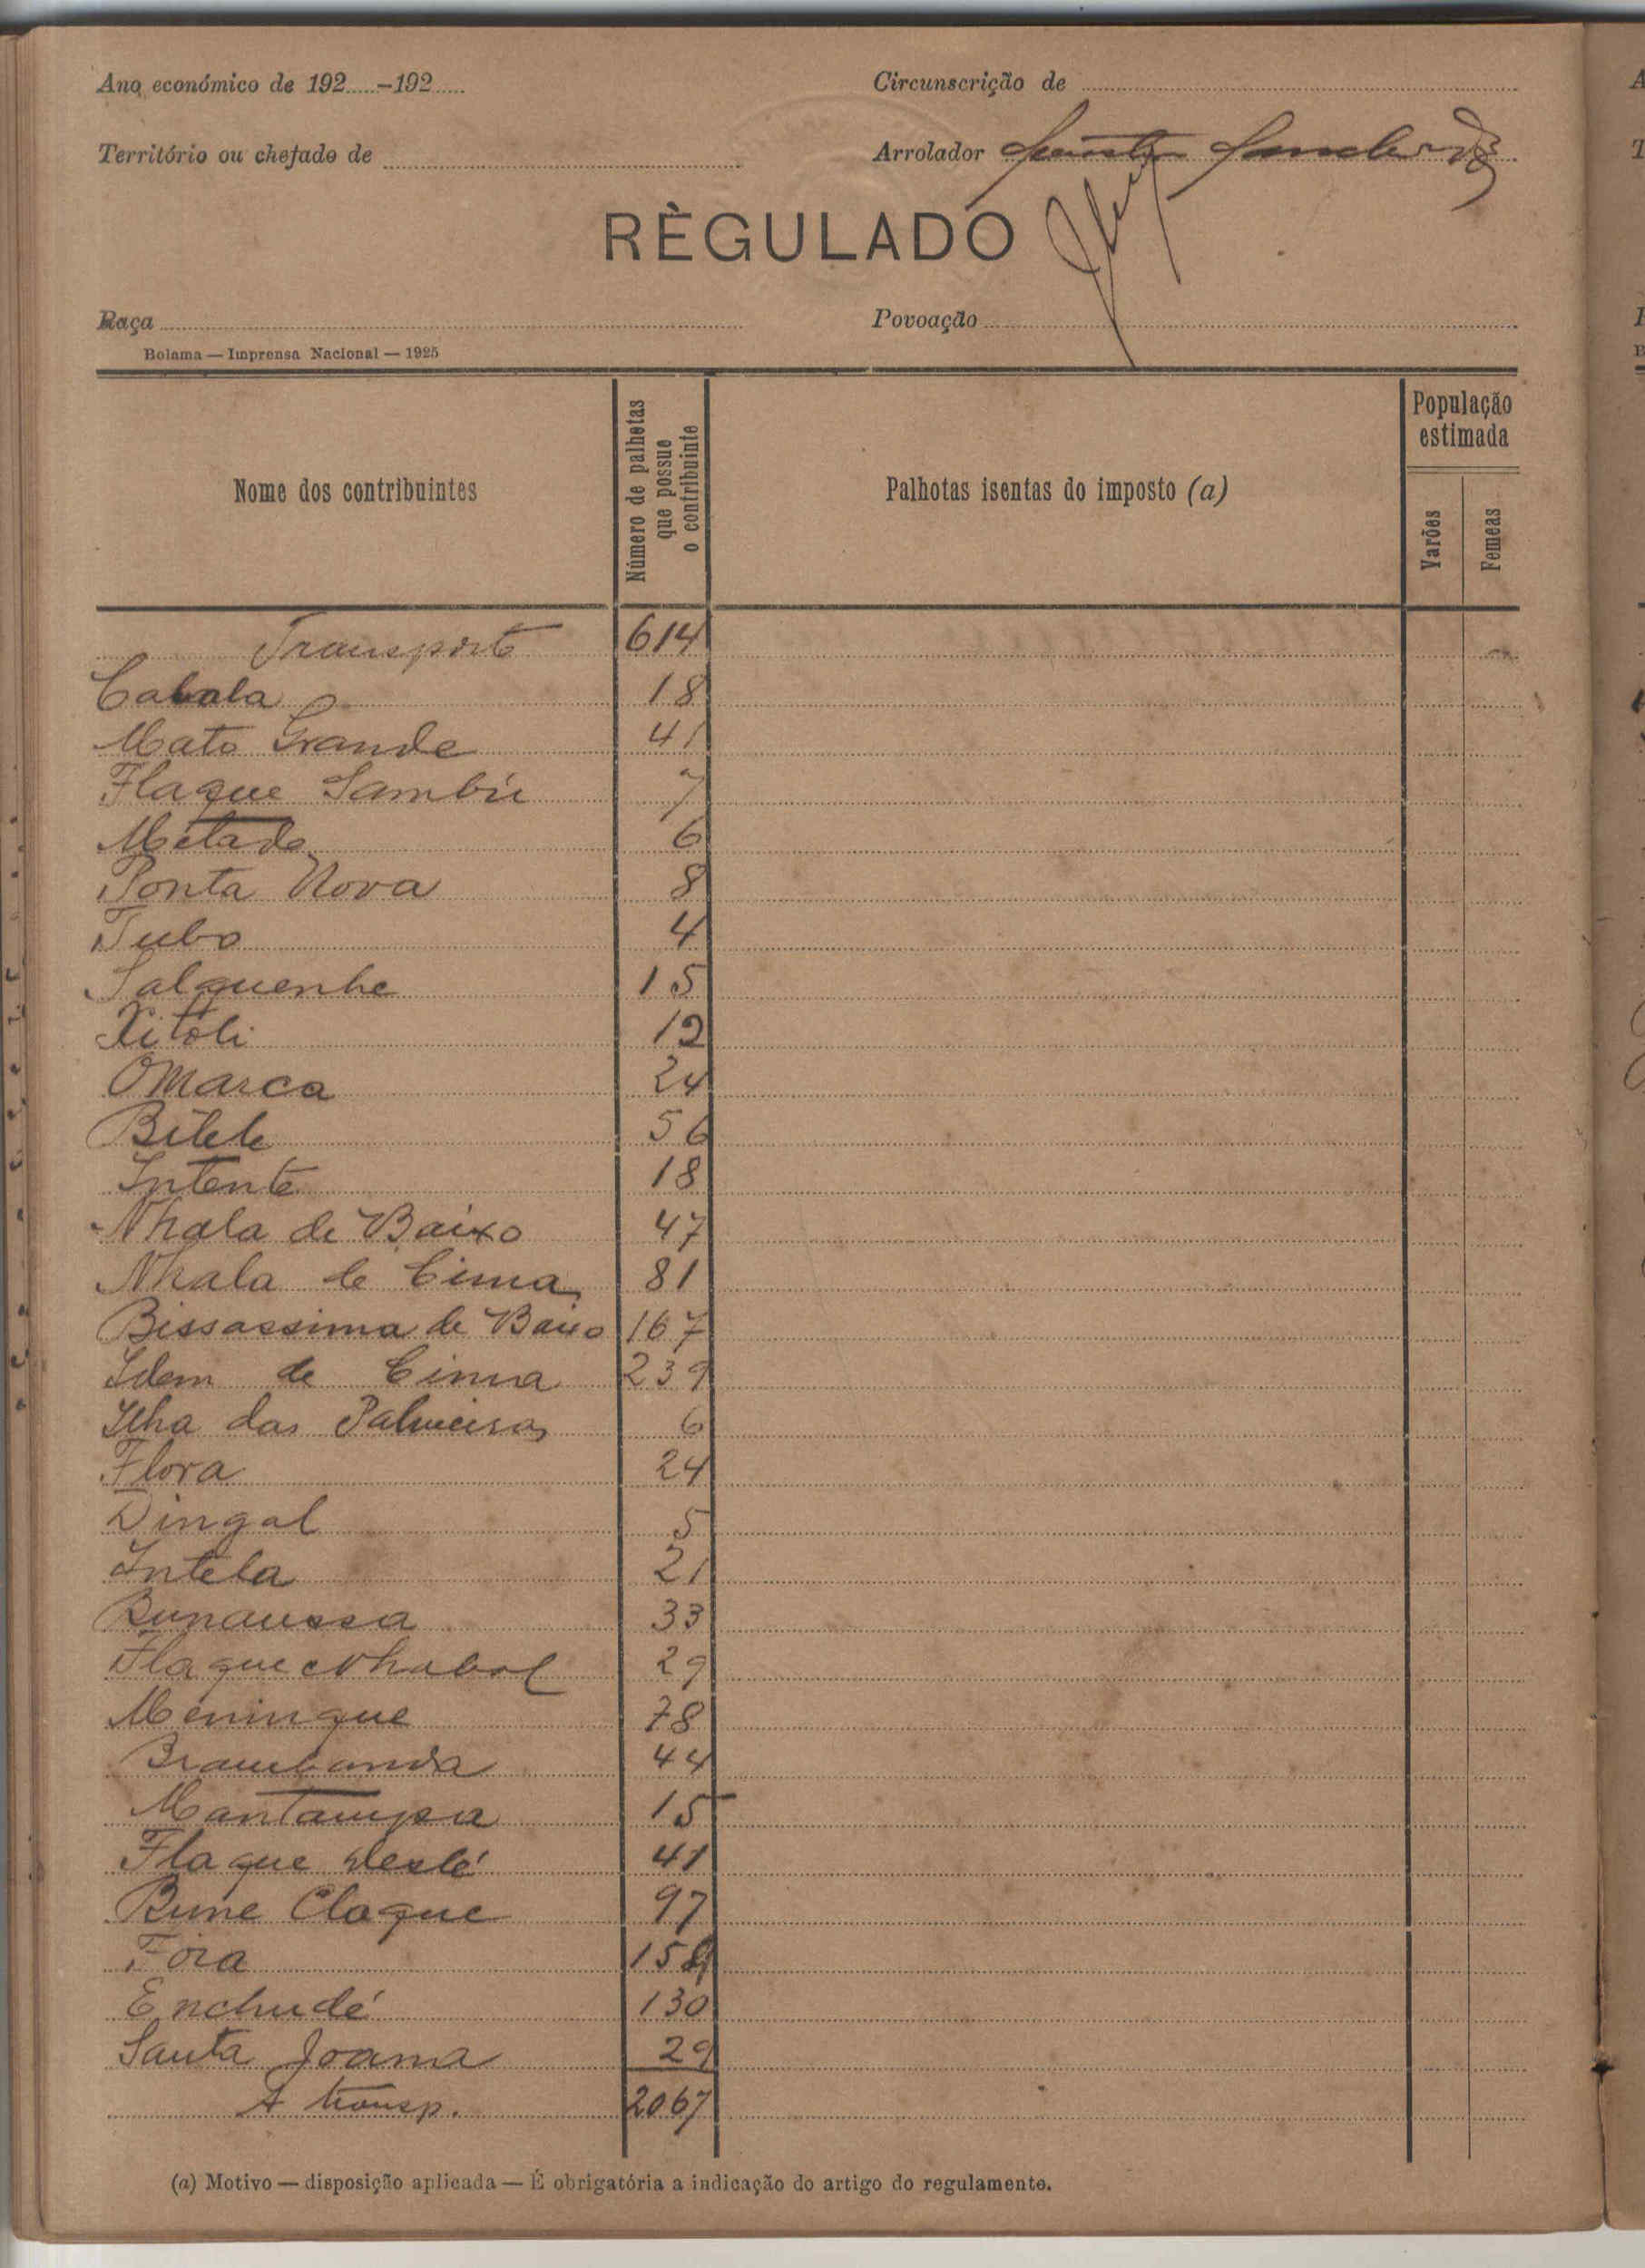 Ano económico de 192.....-192.....
Circunscrição de
Território ou chefado de
Arrolador
RÈGULADO
Raça
Povoação
Bolama — Imprensa Nacional — 1925
Nome dos contribuintes
Número de palhetas que possue o contribuinte
Palhotas isentas do imposto (a)
População estimada
Varões
Femeas
Transporte 614
Cabala 18
Mato Grande 41
Flaque Sambú 7
Metade 6
Ponta Nova 8
Tubo 4
Salquenhe 15
Xitoli 12
Omarca 24
Bilele 56
Intente 18
Nhala de Baixo 47
Nhala de Cima 81
Bissassima de Baixo 167
Idem de Cima 239
Ilha das Palmeiras 6
Flora 24
Dingal 5
Intela 21
Bunaussa 33
Flaque Nhabal 29
Meninque 78
Brambanda 44
Mantampa 15
Flaque 41
Bune Claque 97
Fóia 158
Enchudé 130
Santa Joana 29
A transp. 2067
(a) Motivo — disposição aplicada — É obrigatória a indicação do artigo do regulamento.